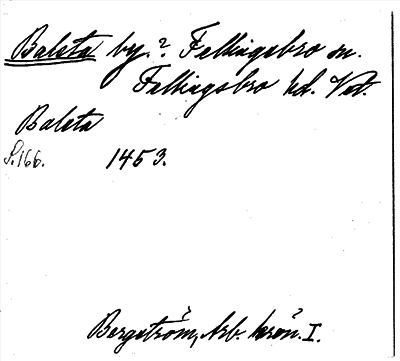 Balsta by.? Fellingsbro sn.
Fellingsbro hd. Vstl.
Balsta
S.166. 1453.
Bergström, Arb. krön. I.